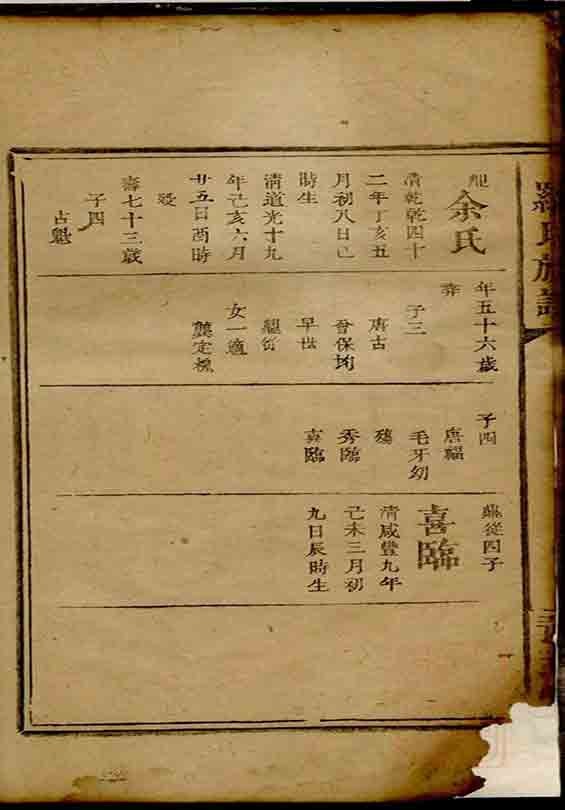 羅氏族譜
配
余氏
清乾乾四十
二年丁亥五
月初八日巳
時生
清道光十九
年己亥六月
廿五日酉時
歿
壽七十三歲
子四
占魁
年五十六歲
葬
子三
唐古
晉保均
早世
女一適
龔定
子四
唐福
毛牙幼
殤
秀臨
喜臨
從四子
喜臨
清咸豐九年
己未三月初
九日辰時生